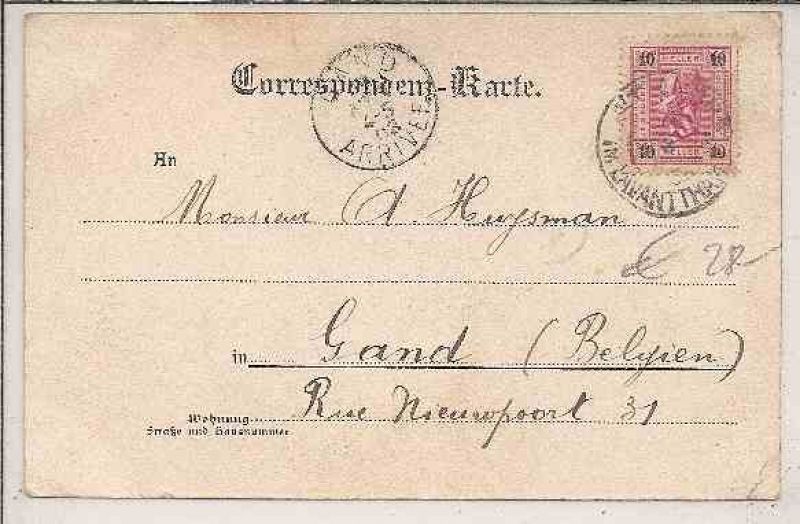 Correspondenz-Karte.
GAND
ARRIVEE
10 HELLER 10
10 10
An
Monsieur A. Huysman
€ 28-
in Gand (Belgien)
Rue Nieuwpoort 31
Wohnung
Straße und Hausnummer